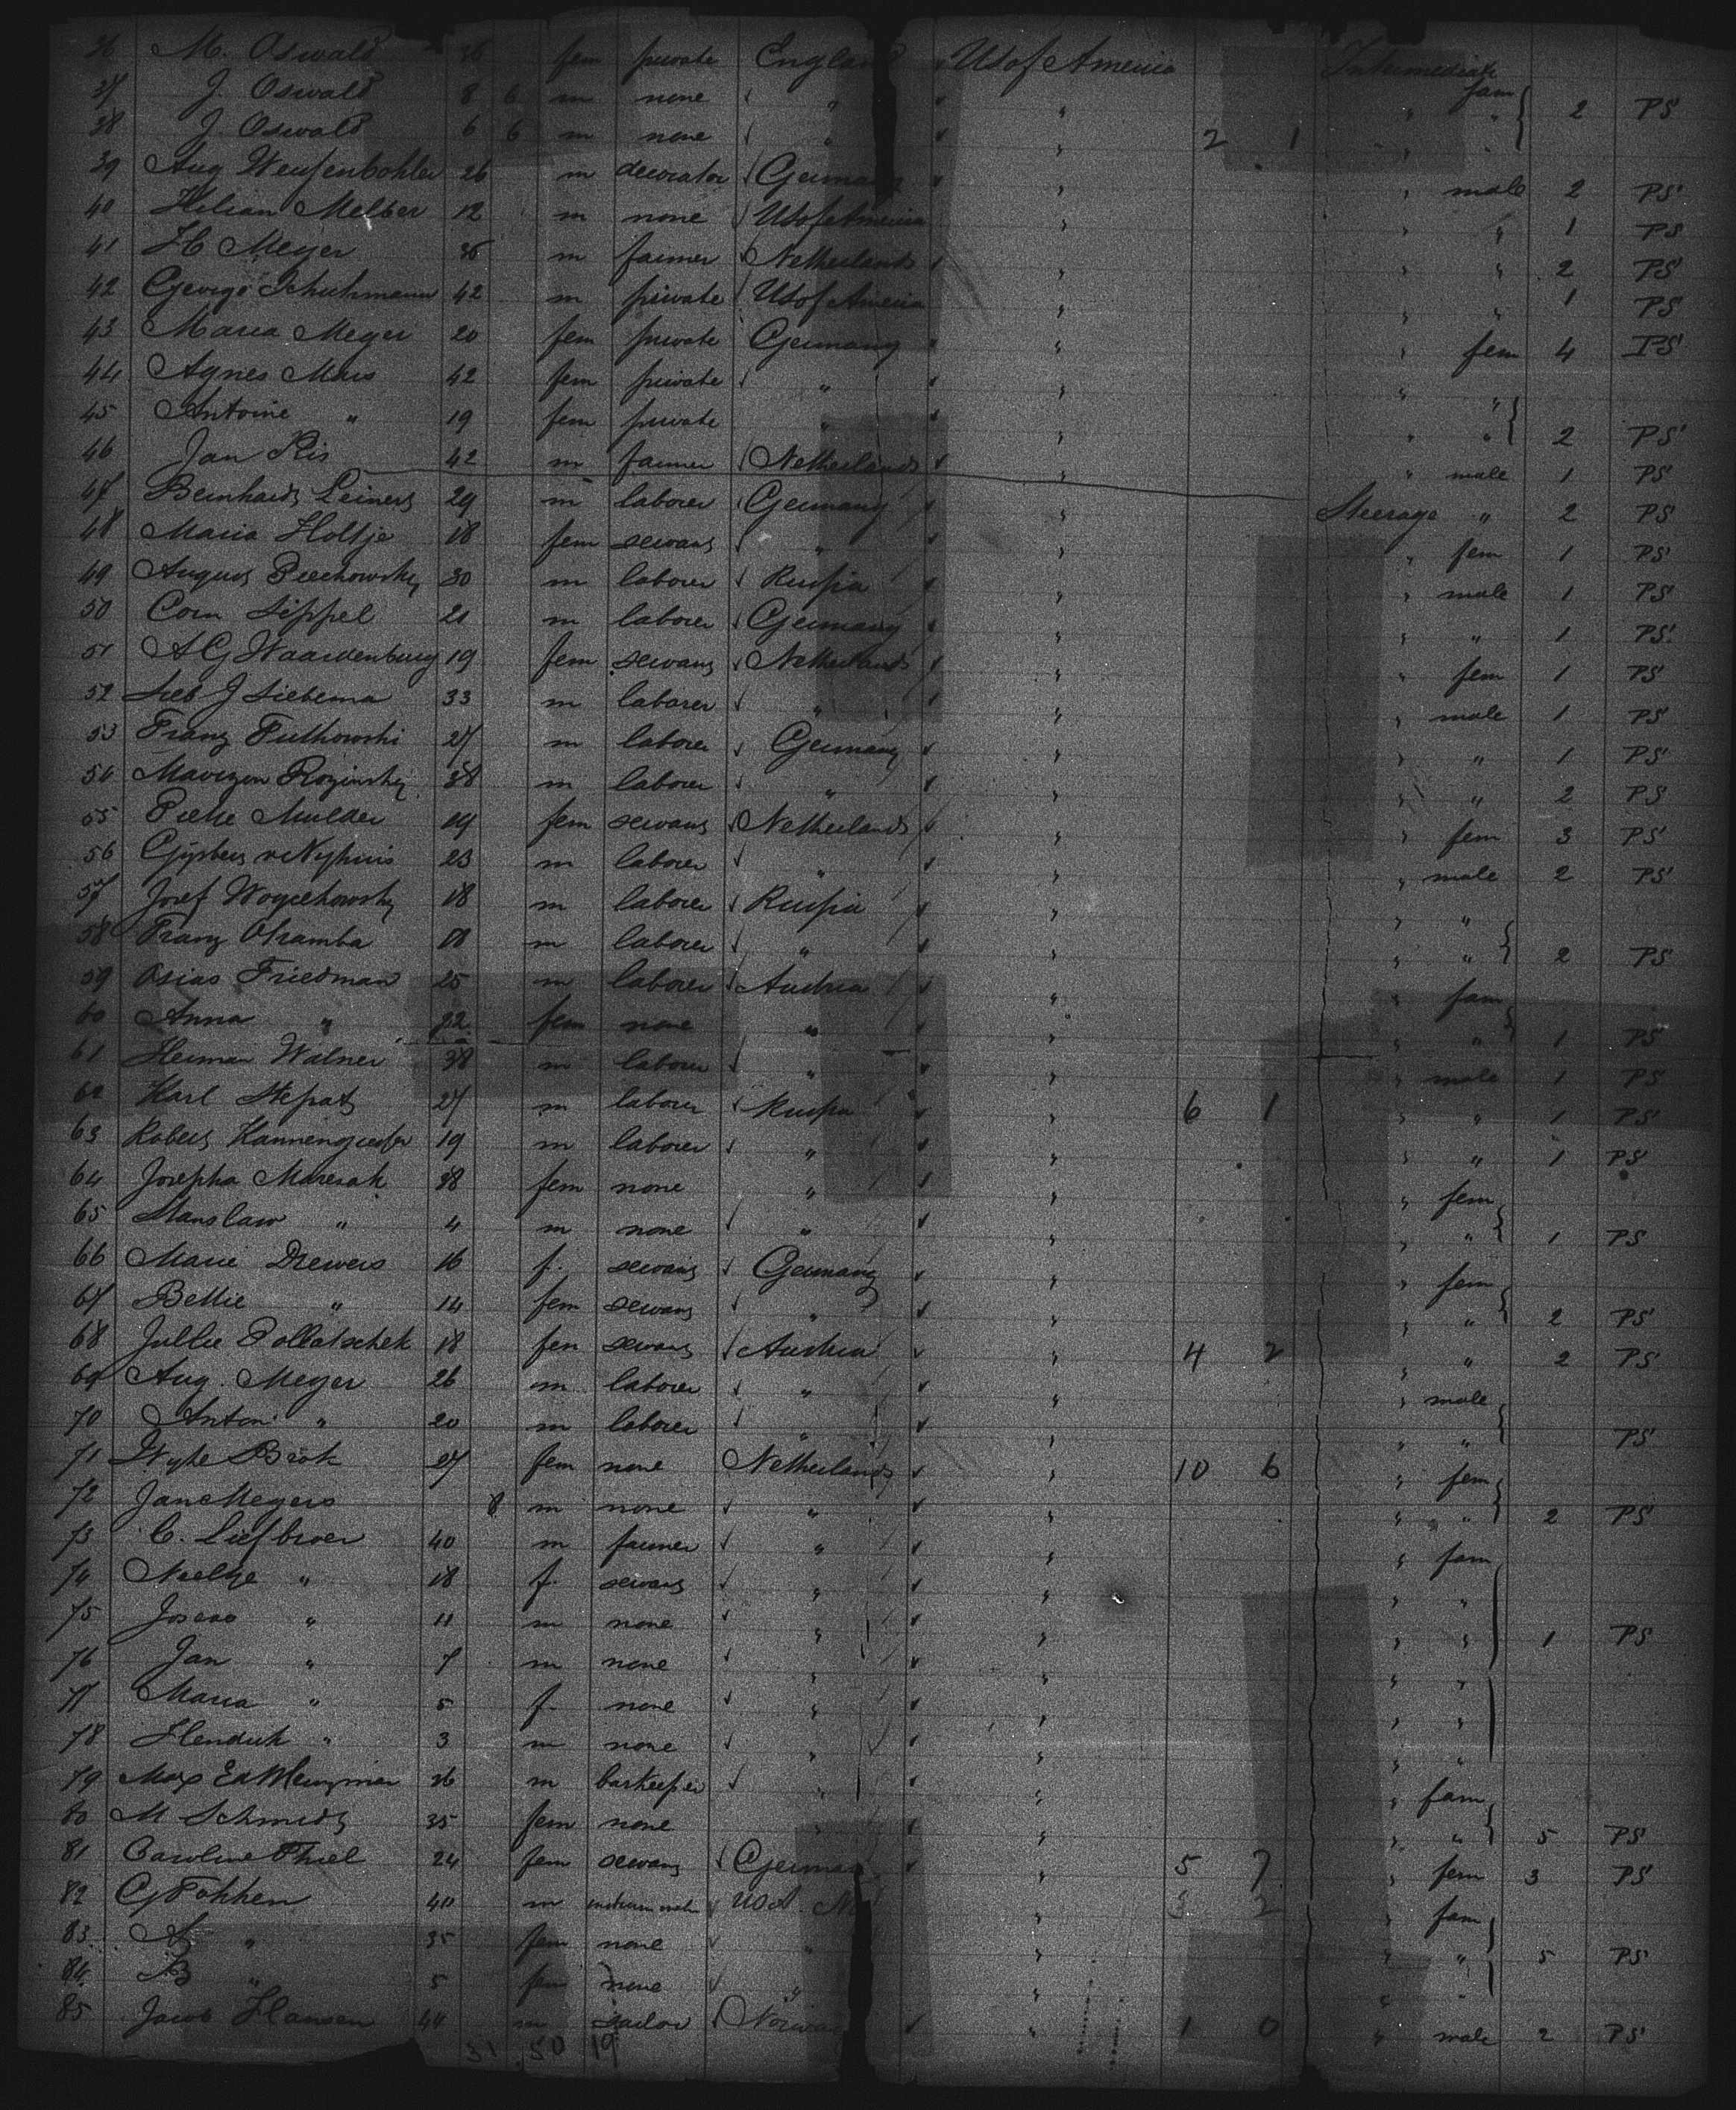 36 M. Oswald 36 fem private England UsofAmerica Intermediate fam
37 J. Oswald 8 6 m none " " " " 2 PS
38 J. Oswald 6 6 m none " " 2 1 " "
39 Aug 26 m decorator Germany " " male 2 PS
40 Melber 12 m none UsofAmerica " " " 1 PS
41 H Meyer 36 m farmer Netherlands " " " 2 PS
42 George Schuhmann 42 m private UsofAmerica " " " 1 PS
43 Maria Meyer 20 fem private Germany " " fem 4 PS
44 Agnes 42 fem private " " " "
45 Antoine " 19 fem private " " " " 2 PS
46 Jan Ris 42 m farmer Netherlands " " male 1 PS
47 Bernhard Leiners 29 m laborer Germany " Steerage " 2 PS
48 Maria Holtje 18 fem servant " " " fem 1 PS
49 August Piechowsky 30 m laborer Russia " " male 1 PS
50 Corn Sippel 21 m laborer Germany " " " 1 PS
51 AG Waardenburg 19 fem servant Netherlands " " fem 1 PS
52 J Siebema 33 m laborer " " " male 1 PS
53 Franz Putkowski 27 m laborer Germany " " " 1 PS
54 Rozinsky 38 m laborer " " " " 2 PS
55 Pieke Mulder 19 fem servant Netherlands " " fem 3 PS
56 23 m laborer " " " male 2 PS
57 Josef Woycehowsky 18 m laborer Russia " " "
58 Franz 18 m laborer " " " " 2 PS
59 Osias Friedman 25 m laborer Austria " " fam
60 Anna " 22 fem none " " " " 1 PS
61 Herman Walner 38 m laborer " " " male 1 PS
62 Karl Stepat 27 m laborer Russia " 6 1 " " 1 PS
63 Robert 19 m laborer " " " " 1 PS
64 Josepha 38 fem none " " " fem
65 Stanslaw " 4 m none " " " " 1 PS
66 Marie Drewers 16 f. servant Germany " " fem
67 Bettie " 14 fem servant " " " " 2 PS
68 Jullie Pollatschek 18 fem servant Austria " 4 2 " " 2 PS
69 Aug. Meyer 26 m laborer " " " male
70 Anton " 20 m laborer " " " " PS
71 Brok 27 fem none Netherlands " 10 6 " fem
72 Jan Meyers 8 m none " " " " 2 PS
73 C. Liefbroer 40 m farmer " " " fam
74 Neeltje " 18 f. servant " " " "
75 " 11 m none " " " " 1 PS
76 Jan " 7 m none " " " "
77 Maria " 5 f. none " " " "
78 Hendrik " 3 m none " " " "
79 Max Ed 36 m barkeeper " " " fam
80 M Schmidt 35 fem none " " " " 5 PS
81 Caroline Thiel 24 fem servant German " 5 7 " fem 3 PS
82 G Fokken 40 m USA " 3 2 " fam
83 A " 35 fem none " " " " 5 PS
84 B " 5 fem none " " " "
85 Jacob Hansen 44 m sailor Norwa " 1 0 " male 2 PS
31 50 19